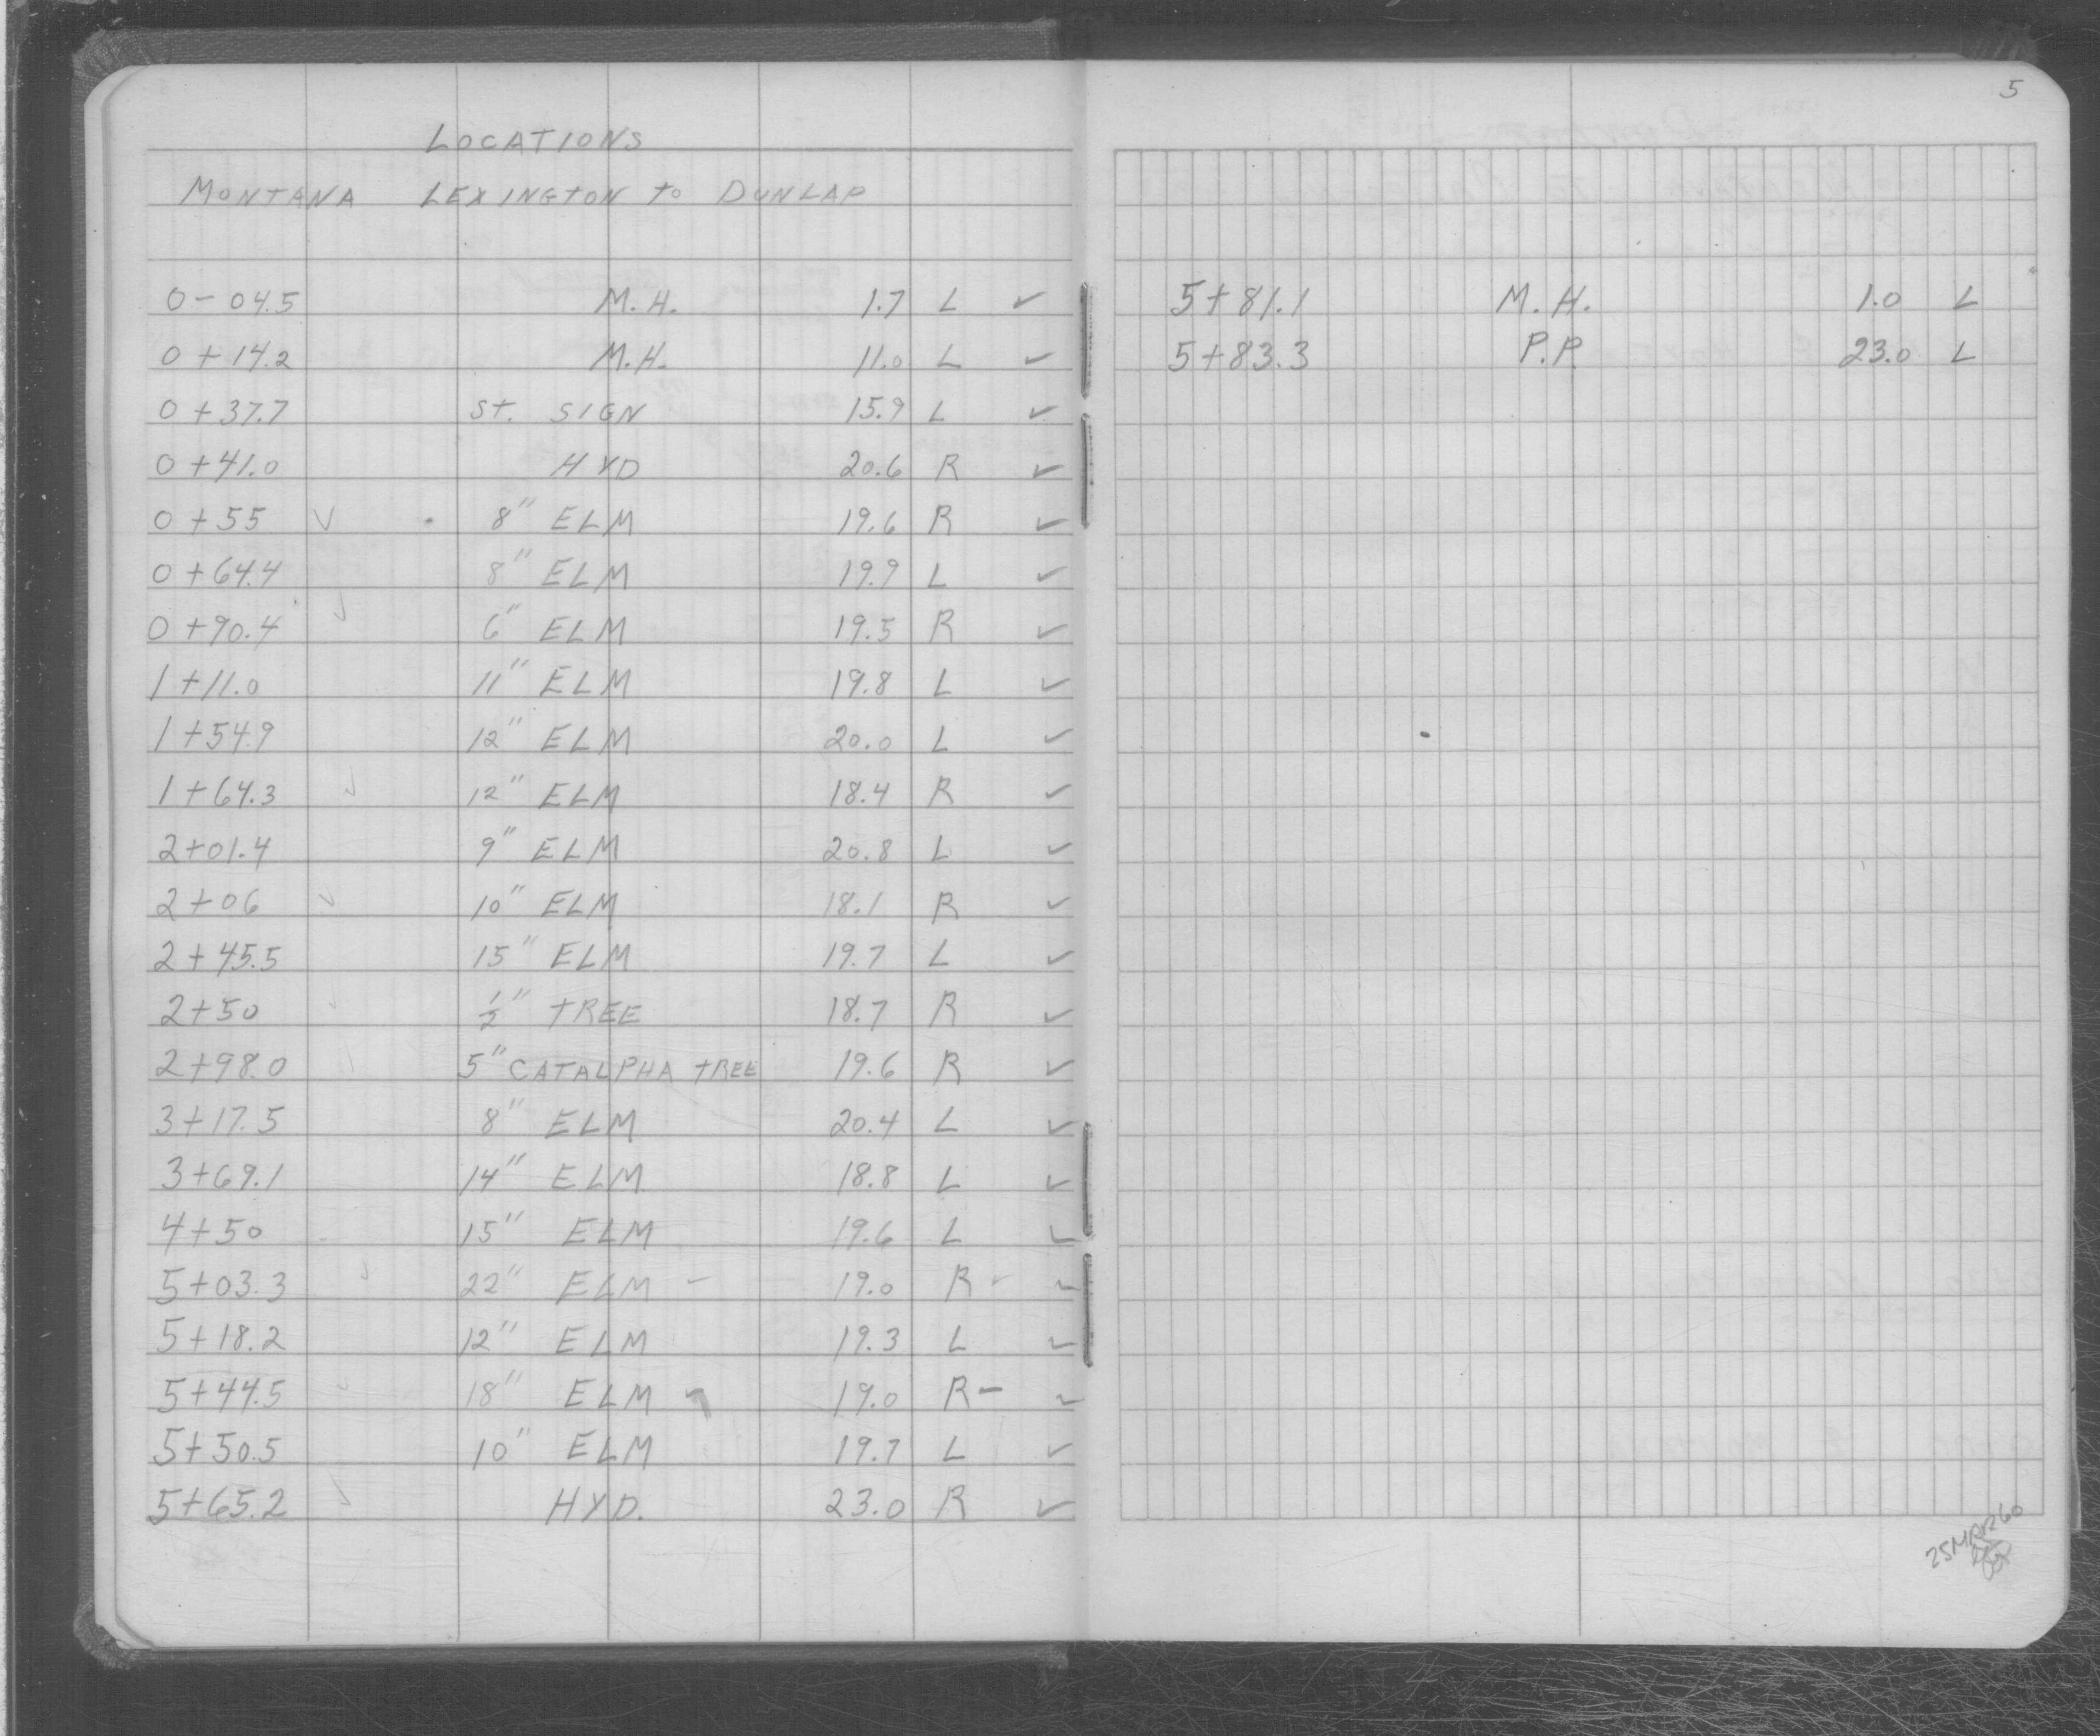 LOCATIONS
MONTANA LEXINGTON to DUNLAP
0-04.5 M.H. 1.7 L ✓
0+14.2 M.H. 11.0 L ✓
0+37.7 St. SIGN 15.9 L ✓
0+41.0 HYD 20.6 R ✓
0+55 ✓ 8" ELM 19.6 R ✓
0+64.4 8" ELM 19.9 L ✓
0+90.4 ✓ 6" ELM 19.5 R ✓
1+11.0 11" ELM 19.8 L ✓
1+54.9 12" ELM 20.0 L ✓
1+64.3 ✓ 12" ELM 18.4 R ✓
2+01.4 9" ELM 20.8 L ✓
2+06 ✓ 10" ELM 18.1 R ✓
2+45.5 15" ELM 19.7 L ✓
2+50 ✓ 1/2" tREE 18.7 R ✓
2+98.0 ✓ 5" CATALPHA tREE 19.6 R ✓
3+17.5 8" ELM 20.4 L ✓
3+69.1 14" ELM 18.8 L ✓
4+50 15" ELM 19.6 L ✓
5+03.3 ✓ 22" ELM ✓ 19.0 R ✓ ✓
5+18.2 12" ELM 19.3 L ✓
5+44.5 ✓ 18" ELM ✓ 19.0 R - ✓
5+50.5 10" ELM 19.7 L ✓
5+65.2 ✓ HYD. 23.0 R ✓
5
5+81.1 M.H. 1.0 L
5+83.3 P.P. 23.0 L
25MAR60